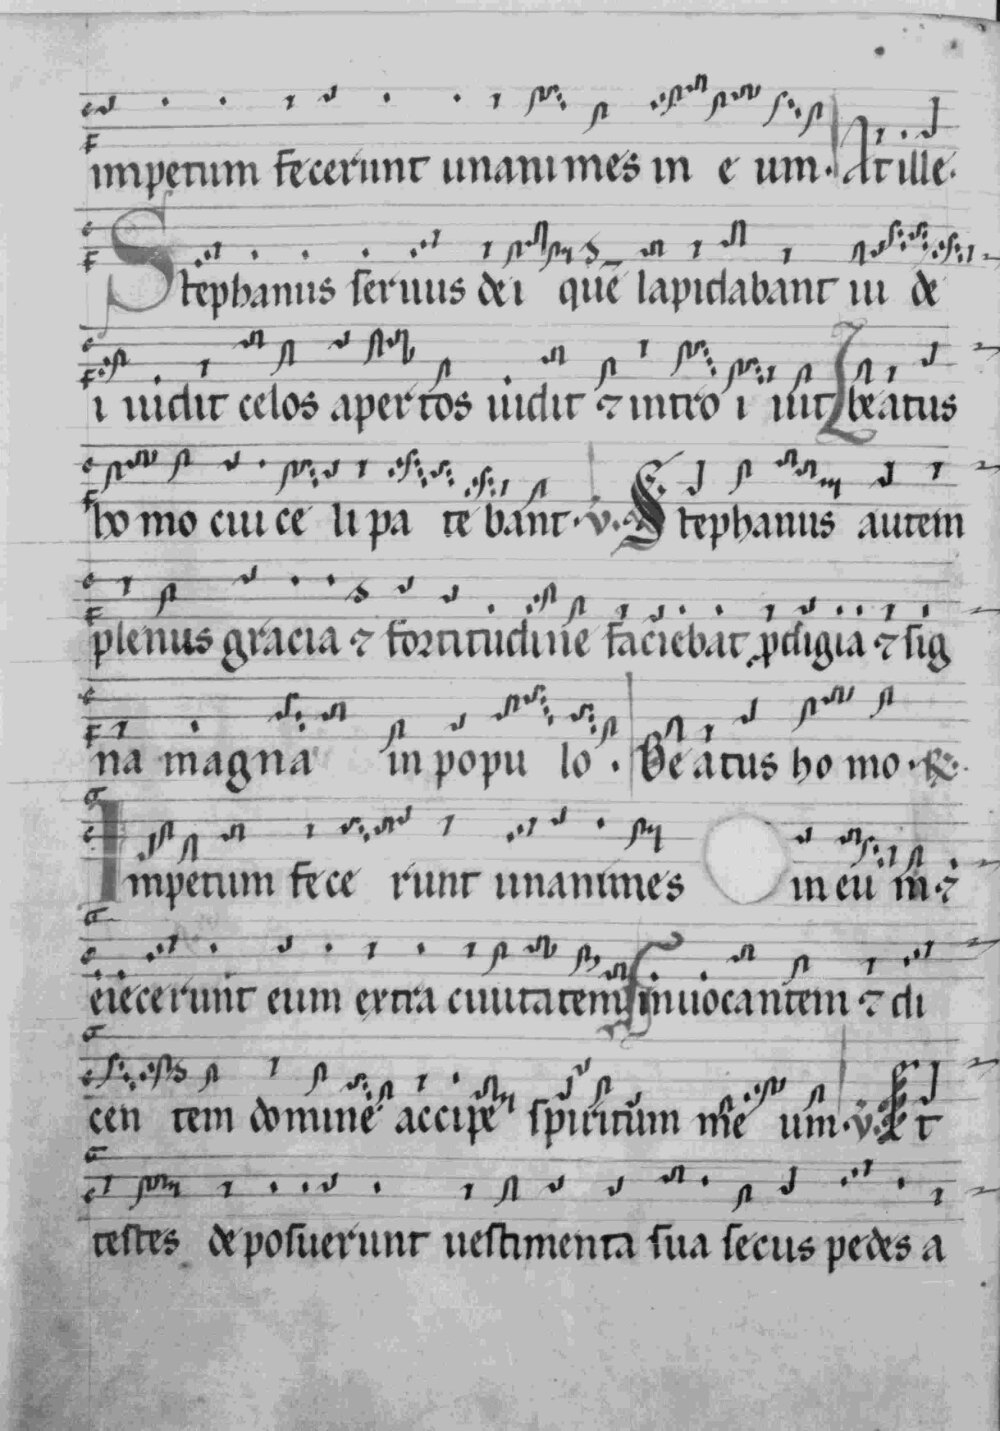 impetum fecerunt unanimes in e um. At ille.
Stephanus seruus dei quē lapidabant iu de
i uidit celos apertos uidit ⁊ intro i uit beatus
homo cui ce li pa te bant. v̄. Stephanus autem
plenus gracia ⁊ fortitudine faciebat ꝓdigia ⁊ sig
na magna in popu lo. Beatus ho mo. R̄.
Impetum fece runt unanimes in eu m. ⁊
eiecerunt eum extra ciuitatem inuocantem ⁊ di
cen tem domine accipe spiritum me um. v̄. Et
testes deposuerunt uestimenta sua secus pedes a